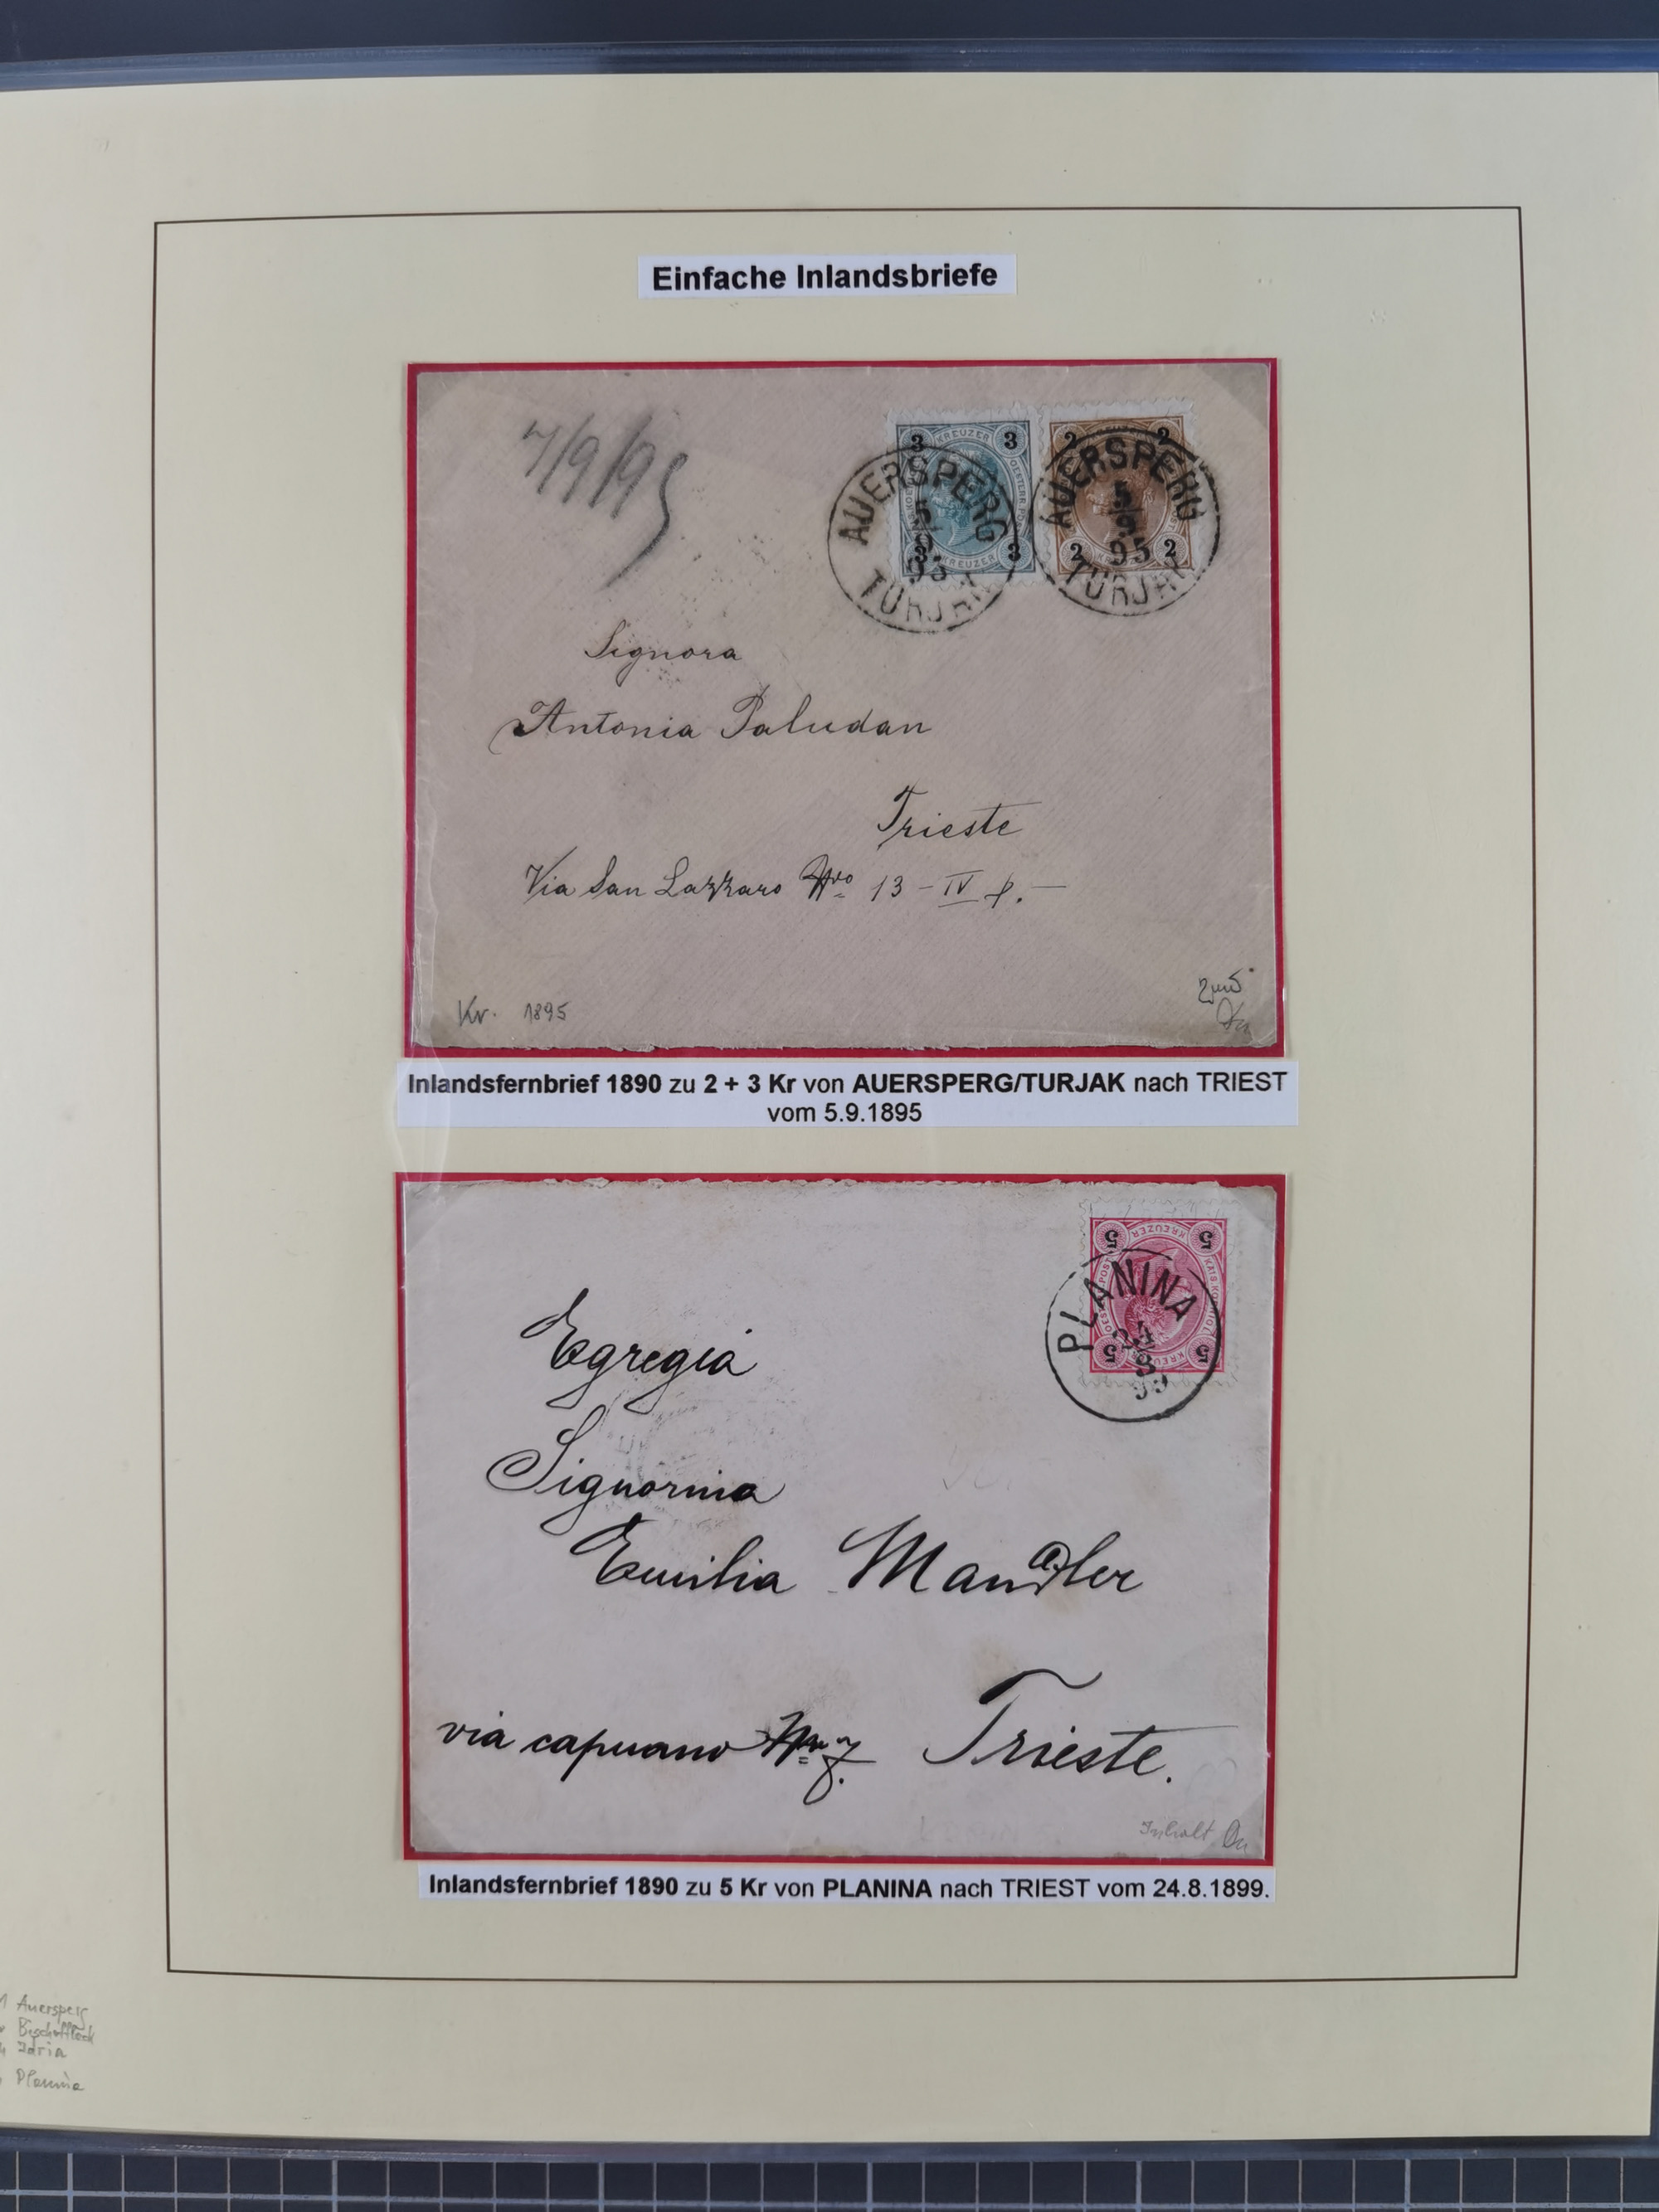 Einfache Inlandsbriefe
7/9/95
3 KREUZER 3
3 KREUZER 3
2 2
2 KREUZER 2
AUERSPERG
5
9
95
TURJAK
AUERSPERG
5
9
95
TURJAK
Signora
Antonia Paludan
Trieste
Via San Lazzaro Nro 13 - IV p. —
Kr. 1895
Inlandsfernbrief 1890 zu 2 + 3 Kr von AUERSPERG/TURJAK nach TRIEST
vom 5.9.1895
5 KREUZER 5
5 KREUZER 5
PLANINA
24
8
99
Egregia
Signorina
Emilia Mandler
via capuano Trieste.
Inhalt
Inlandsfernbrief 1890 zu 5 Kr von PLANINA nach TRIEST vom 24.8.1899.
Auersperg
Bischoflack
Idria
Planina